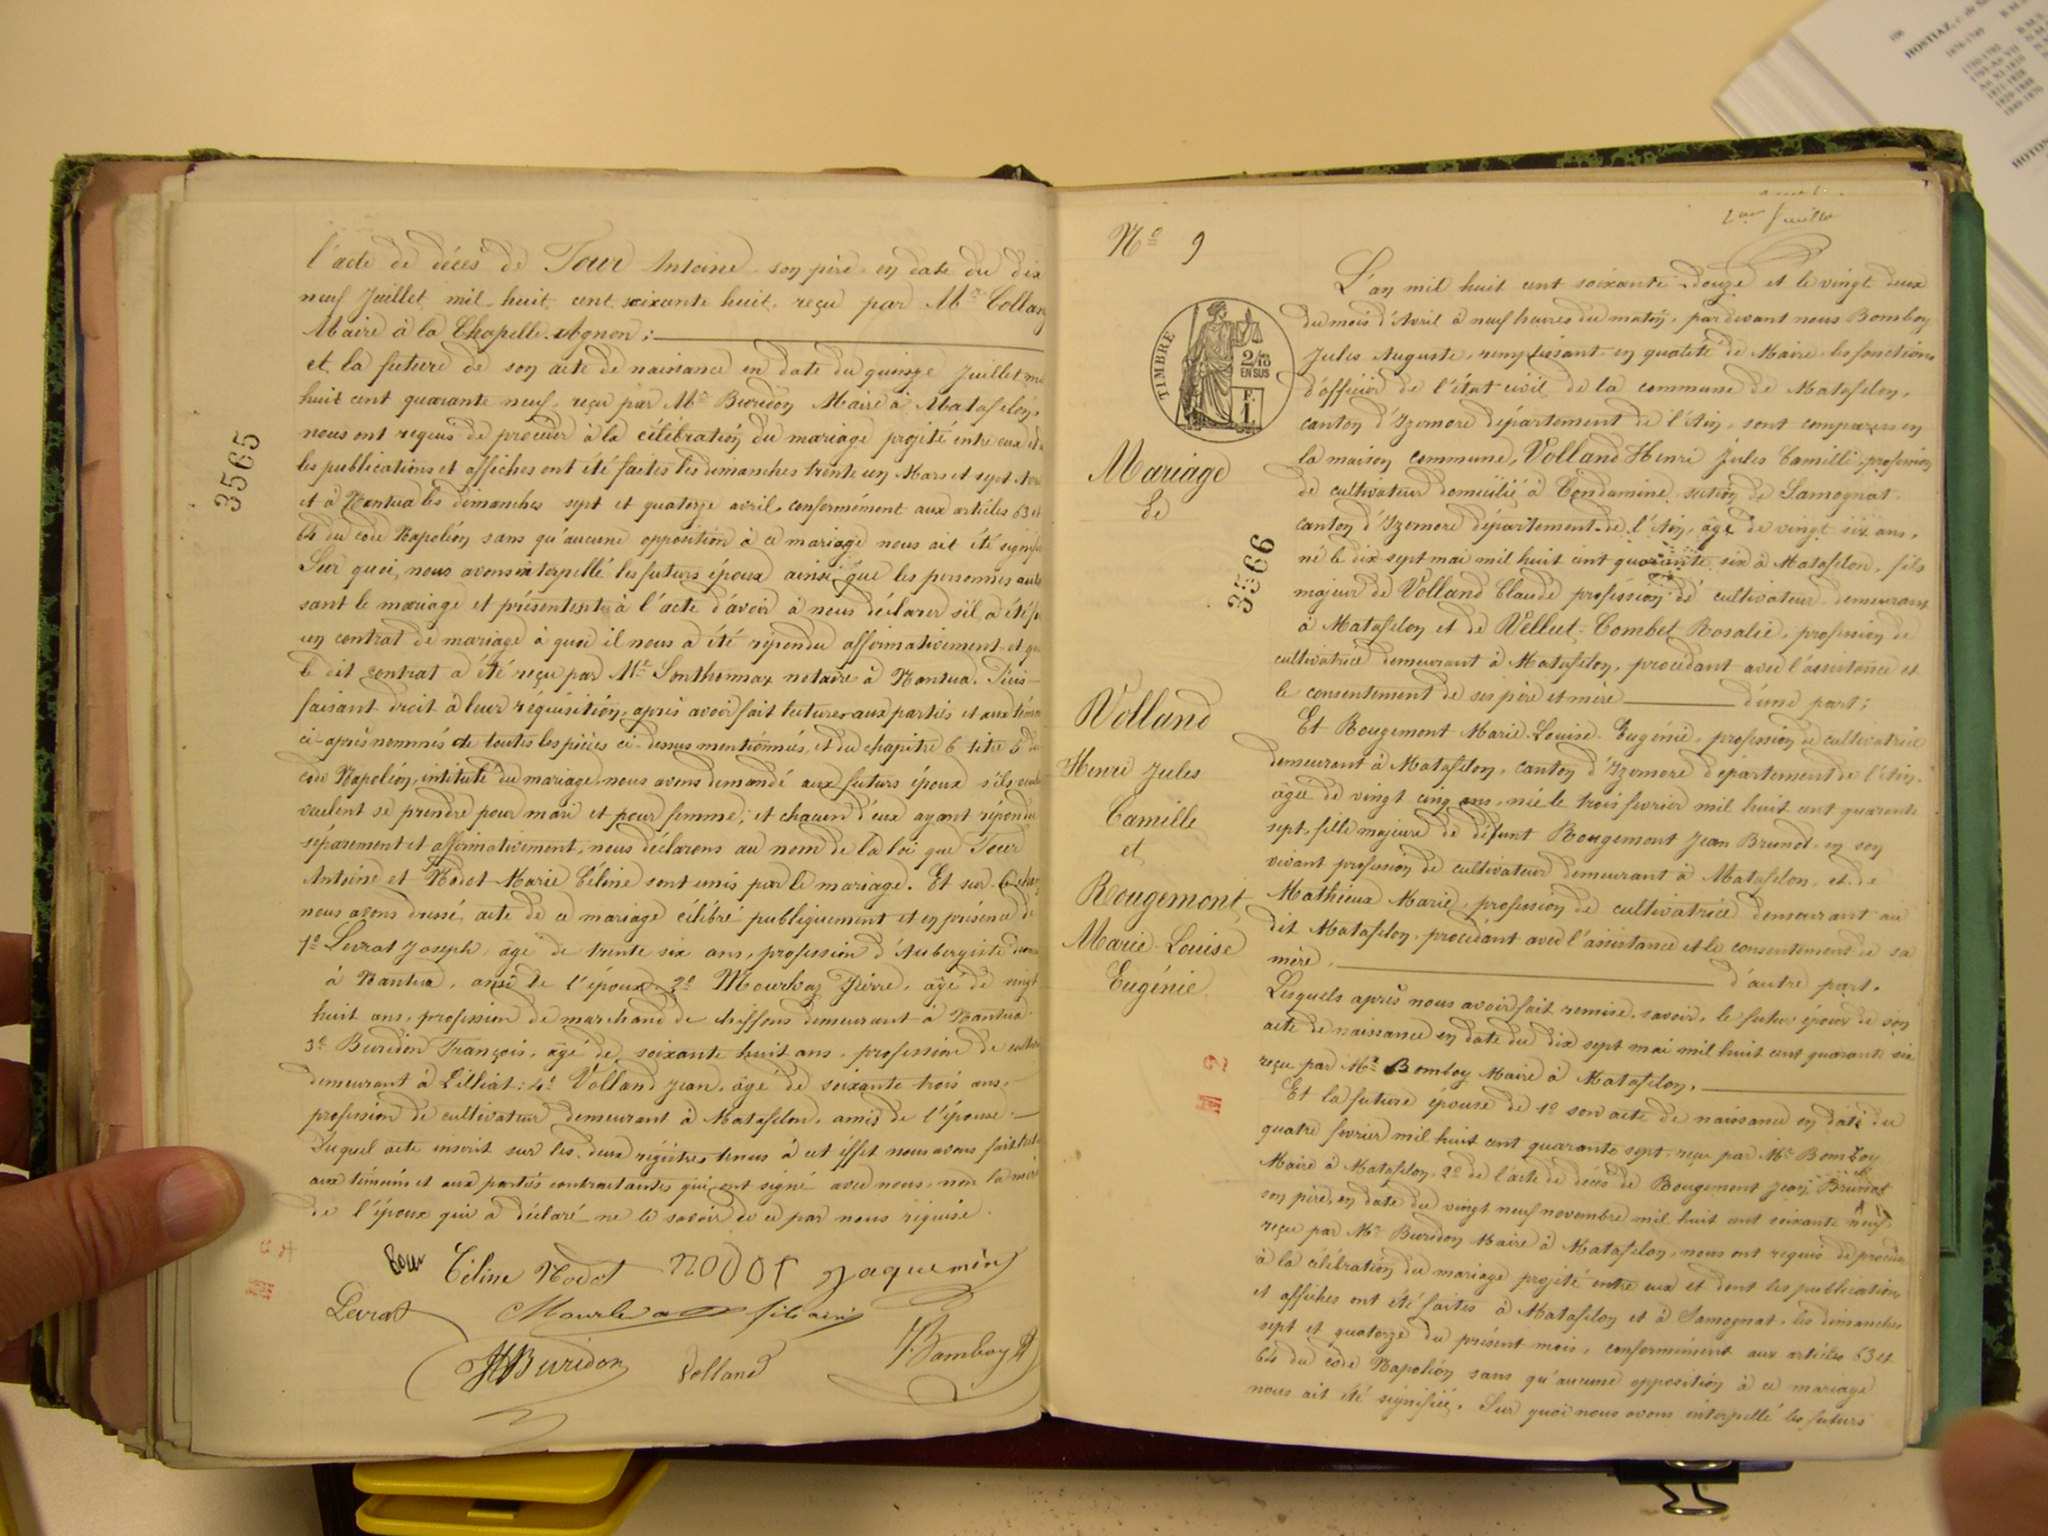 l'acte de décès de Tour Antoine son père en date du dix
neuf Juillet mil huit cent soixante huit, reçu par Mr Collang
Maire à la Chapelle-Agnon;
et la future de son acte de naissance en date du quinze Juillet mil
huit cent quarante neuf, reçu par Mr Buridon Maire à Matafelon,
nous ont requis de procéder à la célébration du mariage projeté entre eux et
les publications et affiches ont été faites les dimanches trente un Mars et sept Avril
et à Nantua les dimanches sept et quatorze avril, conformément aux articles 63 et
64 du code Napoléon sans qu'aucune opposition à ce mariage nous ait été signifiée
Sur quoi, nous avons interpellé les futurs époux ainsi que les personnes autori
sant le mariage et présentes à l'acte d'avoir à nous déclarer s'il a été fait
un contrat de mariage à quoi il nous a été répondu affirmativement et que
le dit contrat a été reçu par Me Sonthonnax notaire à Nantua. Puis
faisant droit à leur réquisition, après avoir fait lecture aux parties et aux témoins
ci-après nommés de toutes les pièces ci-dessus mentionnées, et du chapitre 6 titre 5 du
code Napoléon, intitulé du mariage, nous avons demandé aux futurs époux s'ils
veulent se prendre pour mari et pour femme; et chacun d'eux ayant répondu
séparement et affirmativement, nous déclarons au nom de la loi que Tour
Antoine et Nodot Marie Céline sont unis par le mariage. Et sur le champ
nous avons dressé acte de ce mariage célébré publiquement et en présence de
1º Levrat Joseph, âgé de trente six ans, profession d'Aubergiste
à Nantua, ami de l'époux. 2º Mourlevaz Pierre, âgé de vingt
huit ans, profession de marchand de chiffons demeurant à Nantua
3º Buridon François, âgé de soixante huit ans, profession de
demeurant à Lilliat; 4º Volland Jean, âgé de soixante trois ans,
profession de cultivateur demeurant à Matafelon, amis de l'épouse.
Duquel acte inscrit sur les deux régistres tenus à cet effet nous avons fait lecture
aux témoins et aux parties contractantes qui ont signé avec nous, non la mère
de l'époux qui a déclaré ne le savoir de ce par nous réquise.
Tour Céline Nodot NODOT Jaquemin
Levrat
Buridon Volland J. Bomboy
3565
2me feuille
Nº 9
TIMBRE
2/10
EN SUS
F.
1.
Mariage
de
Volland
Henri Jules
Camille
et
Rougemont
Marie-Louise
Eugénie
3566
L'an mil huit cent soixante-douze et le vingt deux
du mois d'Avril à neuf heures du matin, par devant nous Bomboy
Jules Auguste, remplissant en qualité de Maire les fonctions
d'officier de l'état civil de la commune de Matafelon,
canton d'Izernore département de l'Ain, sont comparus en
la maison commune, Volland Henri Jules Camille, profession
de cultivateur domicilié à Condamine section de Samognat
canton d'Izernore département de l'Ain, âgé de vingt six ans,
né le dix sept mai mil huit cent quarante six à Matafelon, fils
majeur de Volland Claude profession de cultivateur demeurant
à Matafelon et de Vellut-Combet Rosalie, profession de
cultivatrice demeurant à Matafelon, procédant avec l'assistance et
le consentement de ses père et mère d'une part;
Et Rougemont Marie-Louise-Eugénie, profession de cultivatrice
demeurant à Matafelon, canton d'Izernore département de l'Ain,
âgée de vingt cinq ans, née le trois fevrier mil huit cent quarante
sept, fille majeure de défunt Rougemont Jean Brunot en son
vivant profession de cultivateur demeurant à Matafelon, et de
Mathieux Marie, profession de cultivatrice demeurant au
dit Matafelon, procédant avec l'assistance et le consentement de sa
mère, d'autre part.
Lesquels après nous avoir fait remise, savoir, le futur époux de son
acte de naissance en date du dix sept mai mil huit cent quarante six
reçu par Mr Bomboy Maire à Matafelon,
Et la future épouse de 1º son acte de naissance en date du
quatre fevrier mil huit cent quarante sept, reçu par Mr Bomboy
Maire à Matafelon, 2º de l'acte de décès de Rougemont Jean Brunot
son père, en date du vingt neuf novembre mil huit cent soixante neuf,
reçu par Mr Buridon Maire à Matafelon, nous ont requis de procéder
à la célébration du mariage projeté entre eux et dont les publications
et affiches ont été faites à Matafelon et à Samognat, les dimanches
sept et quatorze du présent mois, conformément aux articles 63 et
64 du code Napoléon sans qu'aucune opposition à ce mariage
nous ait été signifiée. Sur quoi nous avons interpellé les futurs
HOSTIAZ, c. de